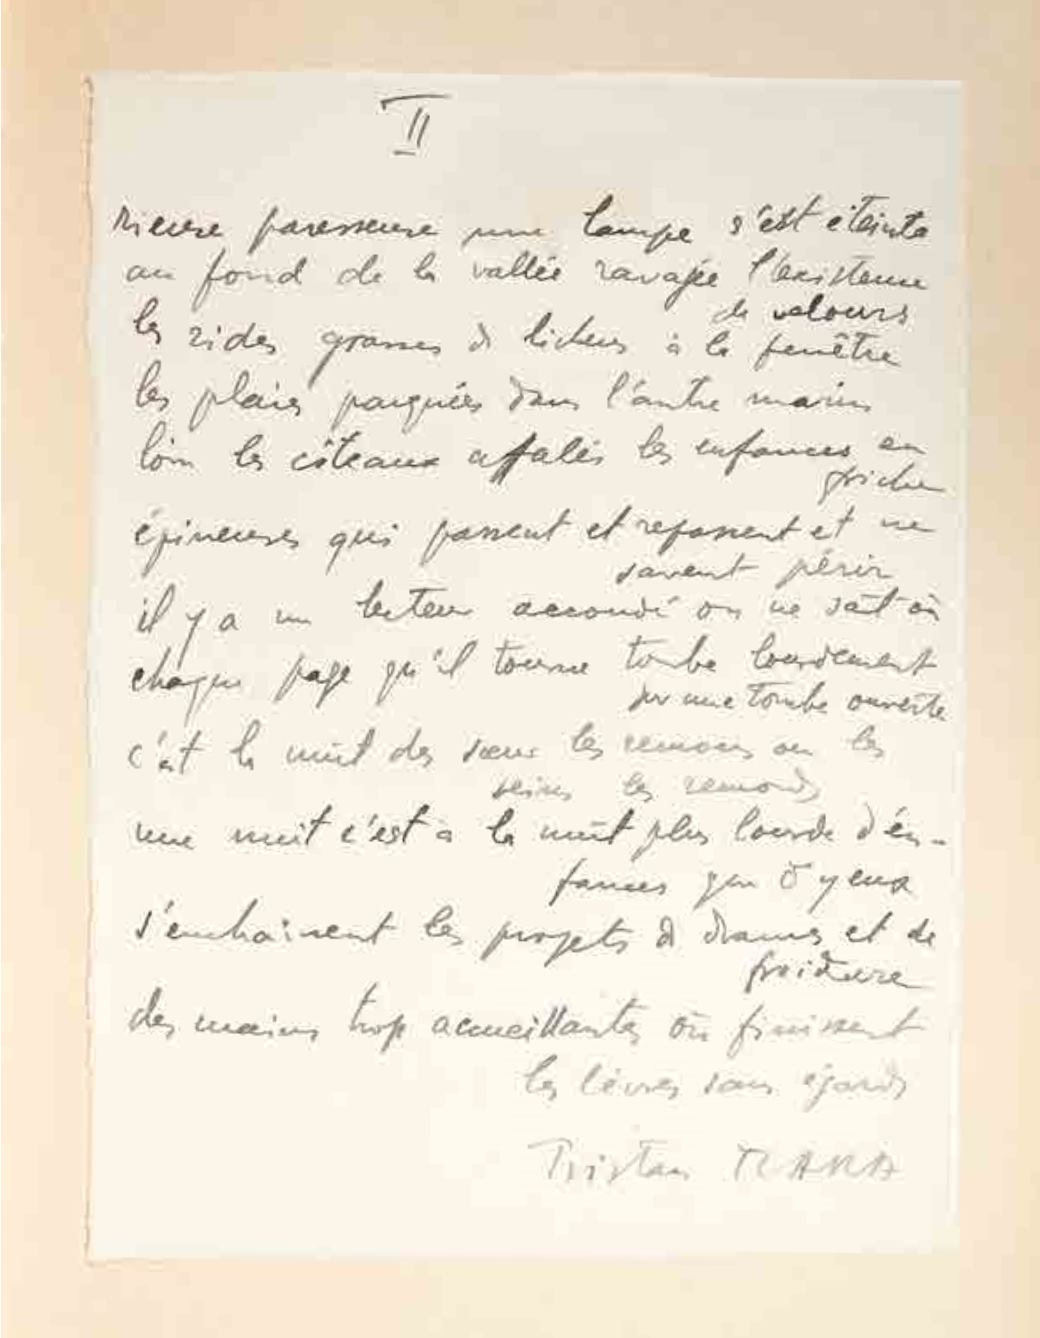 II
rieuse paresseuse une lampe s'est éteinte
au fond de la vallée ravagée l'existence
de velours
les rides grasses de lichens à la fenêtre
les plaies parquées dans l'antre marin
loin les côteaux affalés les enfances en
friche
épineuses qui passent et repassent et ne
savent périr
il y a un lecteur accoudé on ne sait où
chaque page qu'il tourne tombe lourdement
sur une tombe ouverte
c'est la nuit des sœurs les remous ou les
seins les remords
une nuit c'est à la nuit plus lourde d'en-
fances que d'yeux
s'enchaînent les projets de drames et de
froidure
des mains trop accueillantes où finissent
les lèvres sans égards
Tristan TZARA